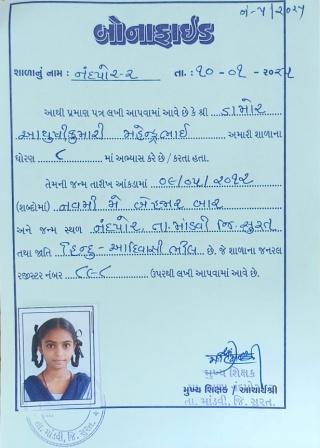 નં-૫/૨૦૨૫
બોનાફાઈડ
શાળાનું નામ : નંદપોર-૨ તા. : ૧૦-૦૧-૨૦૨૫
આથી પ્રમાણ પત્ર લખી આપવામાં આવે છે કે શ્રી ડામોર
આયુષીકુમારી મહેન્દ્રભાઈ અમારી શાળાના
ધોરણ ૮ માં અભ્યાસ કરે છે / કરતા હતા.
તેમની જન્મ તારીખ આંકડામાં ૦૯/૦૫/૨૦૧૨
(શબ્દોમાં) નવમી મે બેહજાર બાર
અને જન્મ સ્થળ નંદપોર, તા.માંડવી જિ.સુરત
તથા જાતિ હિન્દુ-આદિવાસી ભીલ છે. જે શાળાના જનરલ
રજીસ્ટર નંબર ૮૯૮ ઉપરથી લખી આપવામાં આવે છે.
મુખ્ય શિક્ષક
મુખ્ય શિક્ષક / આચાર્યશ્રી
તા. માંડવી, જિ. સુરત.
તા. માંડવી, જિ. સુરત.